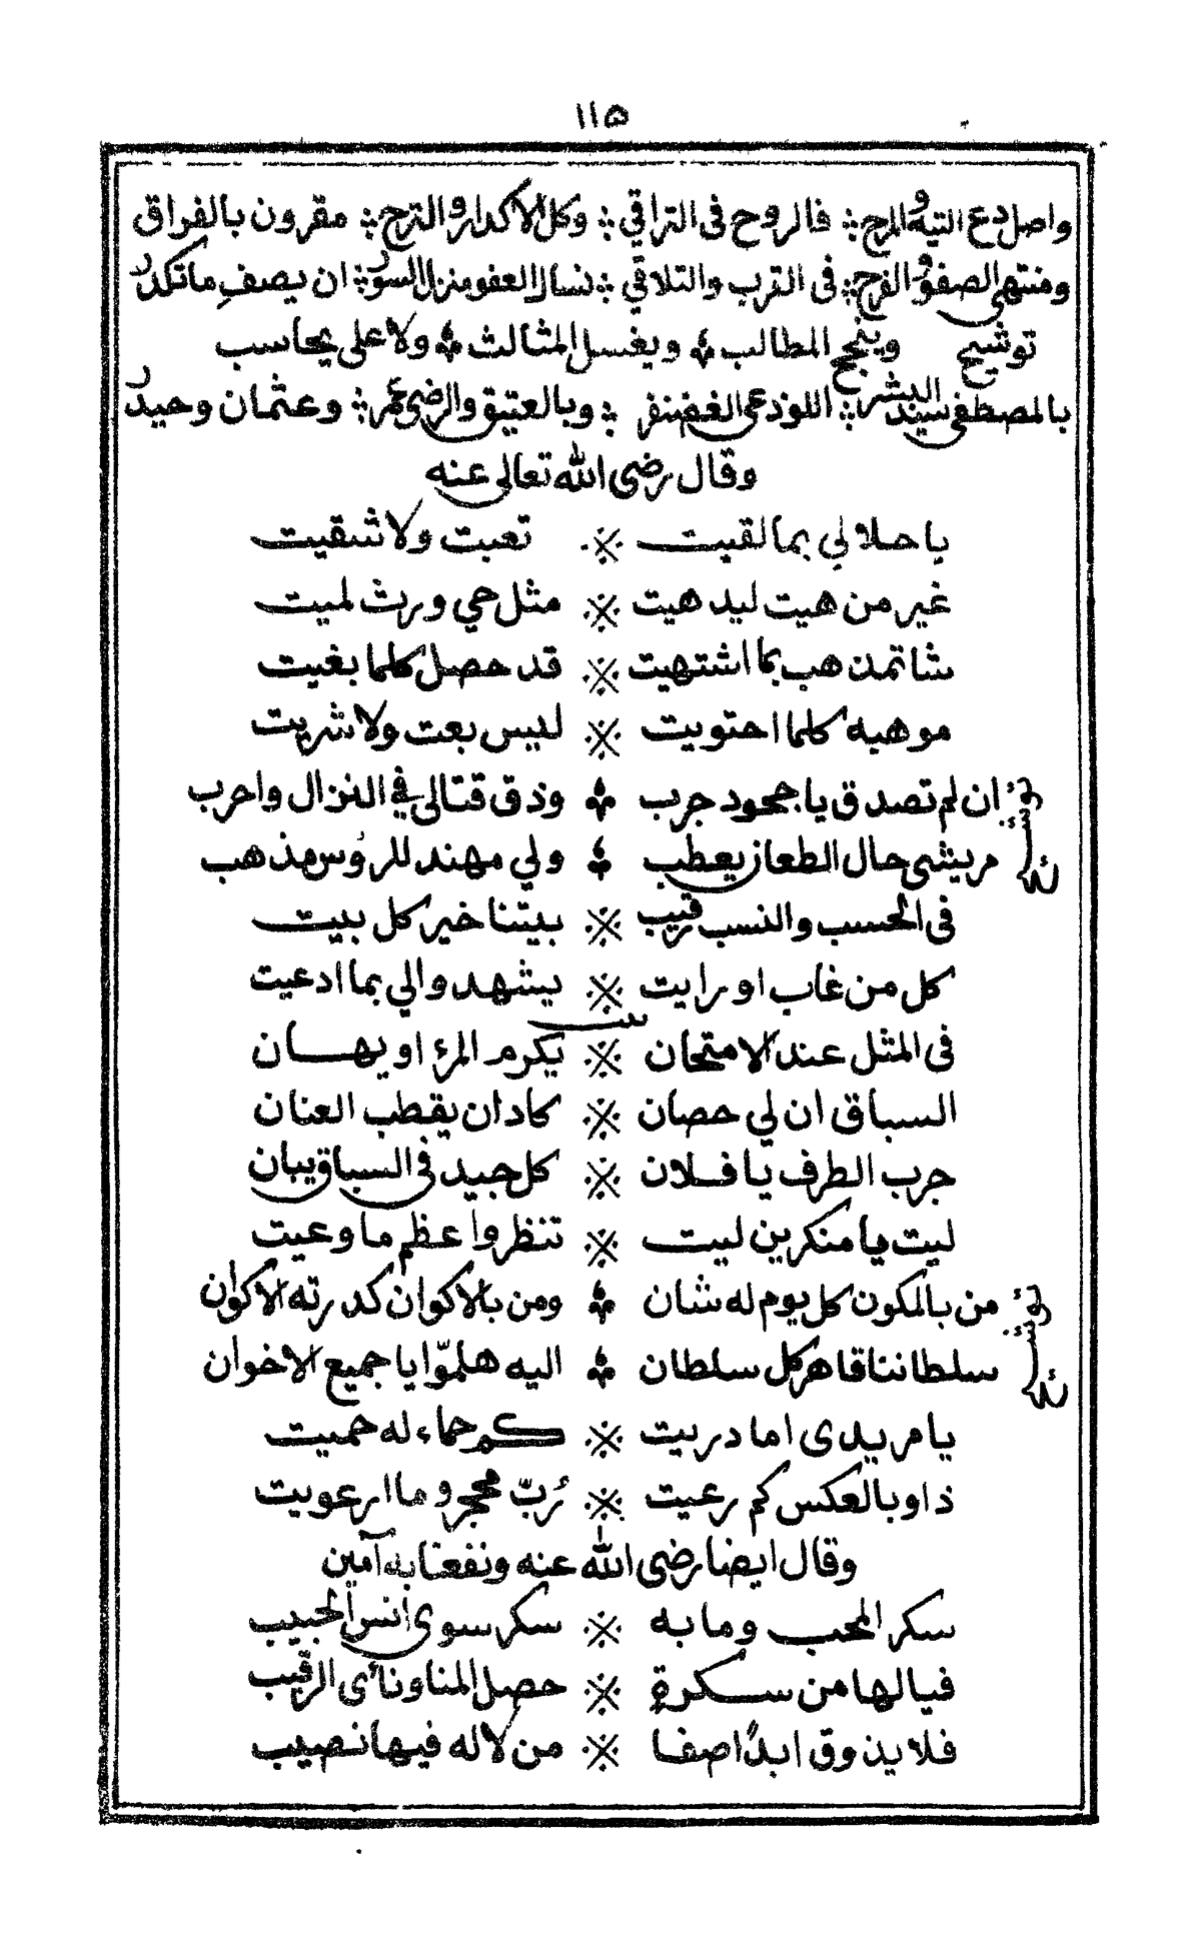 ١١٥
واصل دع التيه والمرج ؞ فالروح في التراقي ؞ وكل الاكدار والترج ؞ مقرون بالفراق
ومنتهى الصفو والفرج ؞ في القرب والتلاقي ؞ نسال العفو منزل السور ؞ ان يصفِ ما تكدر
توشيح وينجح المطالب ؞ ويغسل المثالث ؞ ولا على يحاسب
بالمصطفى سيد البشر ؞ اللوذعى الغضنفر ؞ وبالعتيق والرضى عمر ؞ وعثمان وحيدر
وقال رضى الله تعالى عنه
يا حلالي بما لقيت ※ تعبت ولا شقيت
غير من هيت ليد هيت ※ مثل حي ورث لميت
شاتمن هب بما اشتهيت ※ قد حصل كلما بغيت
موهبه كلما احتويت ※ ليس بعت ولا شريت
توشيح ان لم تصدق يا جحود جرب ؞ وذق قتالى في النزال واحرب
مريشى حال الطعاز يعطب ؞ ولي مهند للرؤس مذهب
بيت في الحسب والنسب قريب ※ بيتنا خير كل بيت
كل من غاب او رايت ※ يشهد والي بما ادعيت
في المثل عند الامتحان ※ يكرم المرء او يهان
السباق ان لي حصان ※ كاد ان يقطب العنان
جرب الطرف يا فلان ※ كل جيد في السباق يبان
ليت يا منكرين ليت ※ تنظروا عظم ما وعيت
توشيح من بالمكون كل يوم له شان ؞ ومن بالاكوان كدرته الاكوان
سلطاننا قاهر كل سلطان ؞ اليه هلمّوا يا جميع الاخوان
يا مريدى اما دريت ※ كم حماء له حميت
ذا وبالعكس كم رعيت ※ رُبّ محجر وما ارعويت
وقال ايضا رضى الله عنه ونفعنا به آمين
سكر المحب وما به ※ سكر سوى انس الحبيب
فيا لها من سكرةٍ ※ حصل المنا ونائ الرقيب
فلا يذوق ابدًا صفا ※ من لا له فيها نصيب